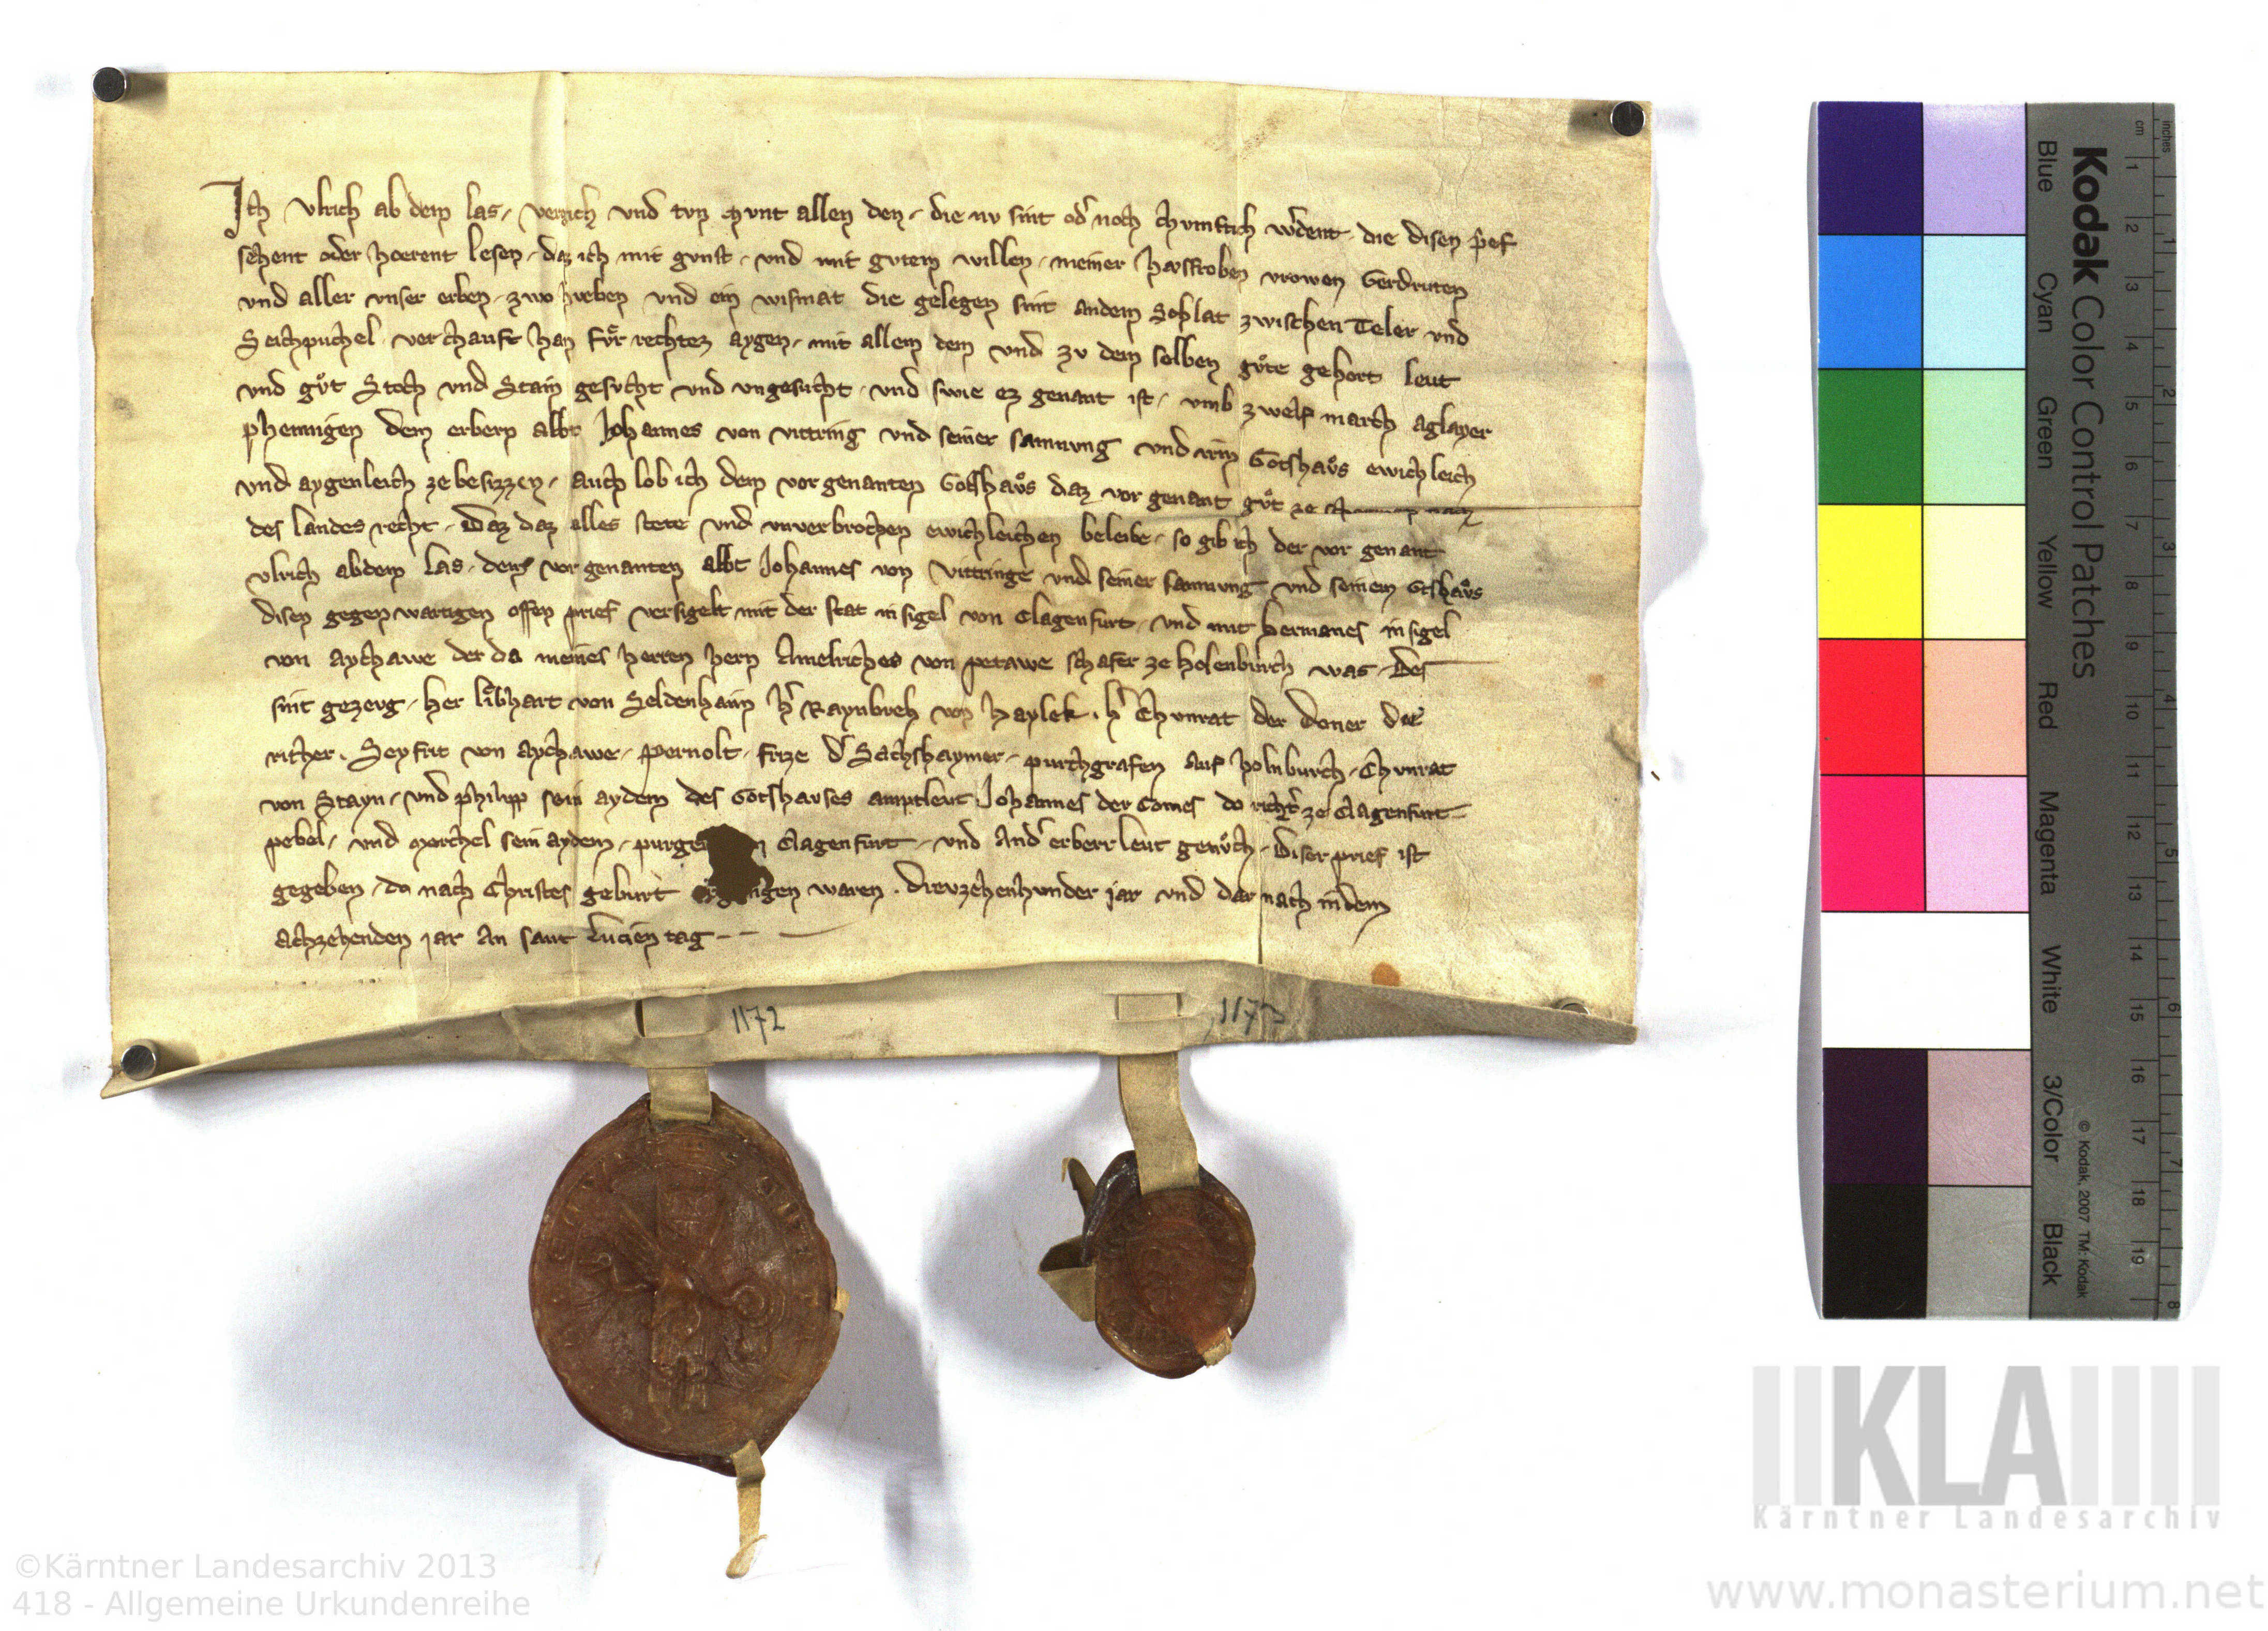 Ich Vlrich ab dem las, vergich vnd tvn chvnt allen den, die nv sint od noch chvmftich wdent, die disen pref
sehent oder hoerent lesen, daz ich mit gvnst, vnd mit gvtem willen, meiner havsfroben vrowen Gerdruten
vnd aller vnser erben, zwo hveben vnd ein wismat die gelegen sint andem Soplat zwischen Teler vnd
Seichpuchel verchauft han fvͦr rechtez aygen, mit allem dem vnd zv dem selben gvͦte gehort leut
vnd gvͦt Stoch vnd Stain gesvcht vnd vngesucht, vnd swie ez genant ist, vmb zwelf march aglayer
phenningen dem erbern abbt Johannes von vittring vnd seiner samnvng vnd irm Gotshavͦs ewichleich
vnd aygenleich ze besizzen, auch lob ich dem vorgenanten Gotshavͦs daz vor genant gvͦt ze nach
des landes recht, Daz daz alles stete vnd vnverbrochen ewichleichen beleibe, so gib ich der vor genant
Vlrich abdem Las, dem vorgenanten abbt Johannes von Vittringe vnd seiner samnvng vnd seinem Gtshavͦs
disen gegenwartigen offen prief versigelt mit der stat insigel von Clagenfurt, vnd mit Hermanes insigel
von aychawe der da meines herren hern Amelriches von petawe schafer ze Holenburch was, Des
sint gezevg, Her libhart von Seldenhaim h Raynbreh von Haylek, h Chvnrat der Doner die
richer, Seyfrit von aychawe, pernolt, frize d Sachshaymer, purchgrafen auf holnburch, Chvnrat
von Stayn, vnd philipp sein aydem des Gotshavses amptlevt Johannes der Comes do richt ze Clagenfurt
pebel, vnd merchel sein aydem, purge n Clagenfurt, vnd And erberr levt genvͦch, Diser prief ist
gegeben, do nach Christes geburt ergangen waren, Drevzehenhvnder jar vnd dar nach indem
achzehenden jar An sant Lucien tag
1172
1173
Kodak Color Control Patches
Blue Cyan Green Yellow Red Magenta White 3/Color Black
© Kodak, 2007 TM: Kodak
cm 1 2 3 4 5 6 7 8 9 10 11 12 13 14 15 16 17 18 19
inches 1 2 3 4 5 6 7 8
KLA
Kärntner Landesarchiv
©Kärntner Landesarchiv 2013
418 - Allgemeine Urkundenreihe
www.monasterium.net